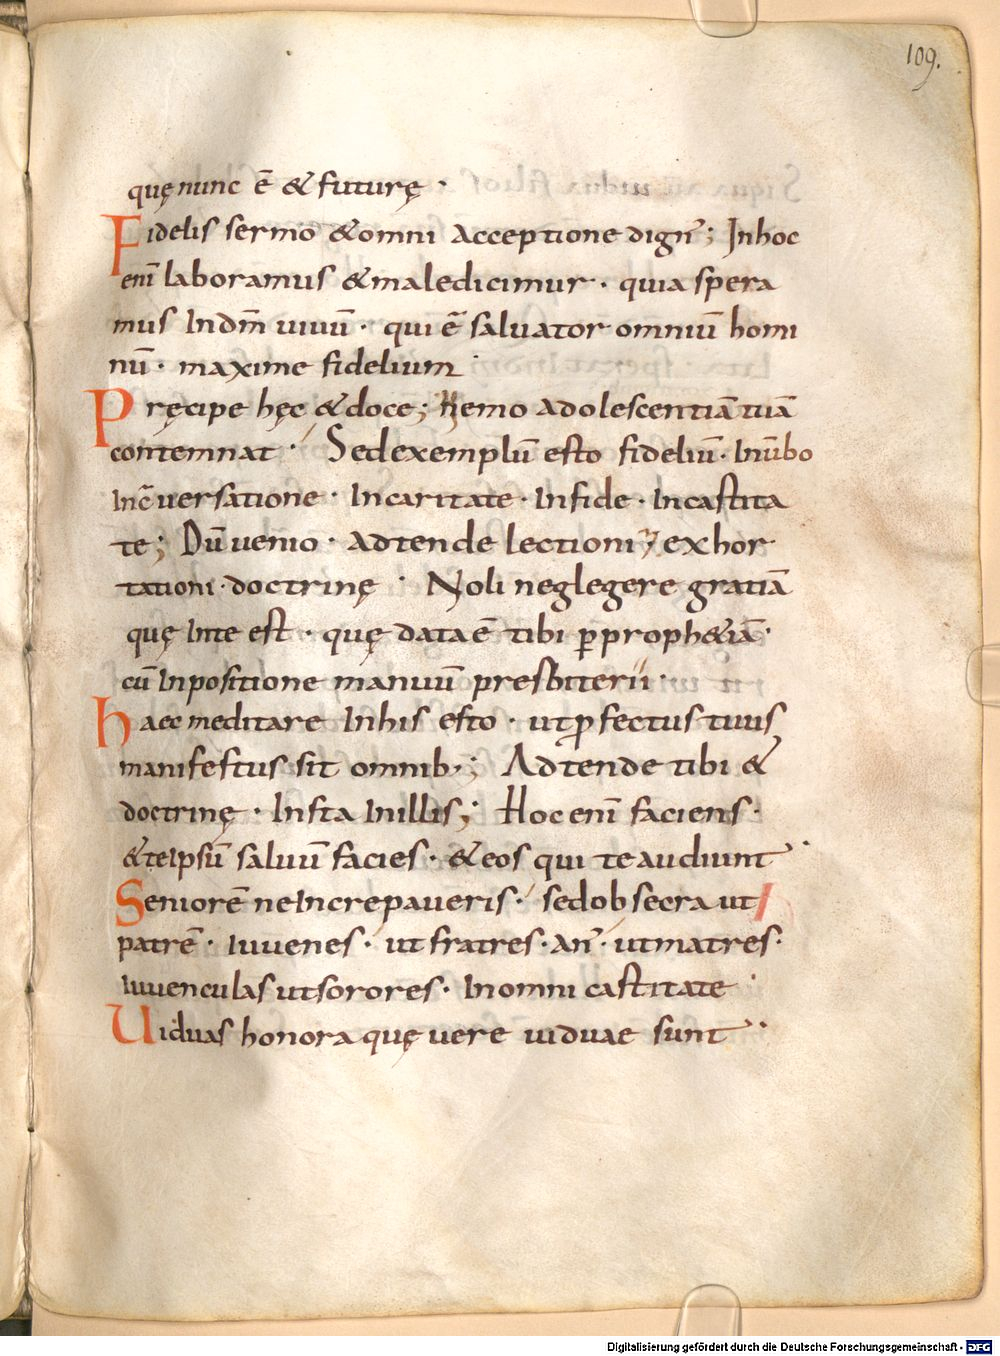 109.
quęnunc ē & futurę ·
Fidelis sermo &omni acceptione dign̄; Inhoc
enī laboramus &maledicimur · quia spera
mus Indm̄ uiuū · qui ē saluator omniū homi
nū · maxime fidelium
Pręcipe hęc &doce; Nemo adolescentiā tuā
contemnat · Sedexemplū esto fideliū · Inūbo
Inc̄uersatione · Incaritate · Infide · Incastita
te; Dū uenio · adtende lectioni; exhor
tationi · doctrinę · Noli neglegere gratiā
quę Inte est · quę data ē tibi ꝑproph&iā ·
cū Inpositione manuū presbiterii ·
haec meditare Inhis esto · utꝓfectus tuus
manifestus sit omnib·; Adtende tibi &
doctrinę · Insta Inillis; Hoc enī faciens ·
&teIpsū saluū facies · &eos qui te audiunt
Seniorē neIncrepaueris · sedobsecra ut
patrē · Iuuenes · ut fratres · an̄ · utmatres ·
Iuuenculas utsorores · Inomni castitate
Uiduas honora quę uere uiduae sunt
Digitalisierung gefördert durch die Deutsche Forschungsgemeinschaft - DFG